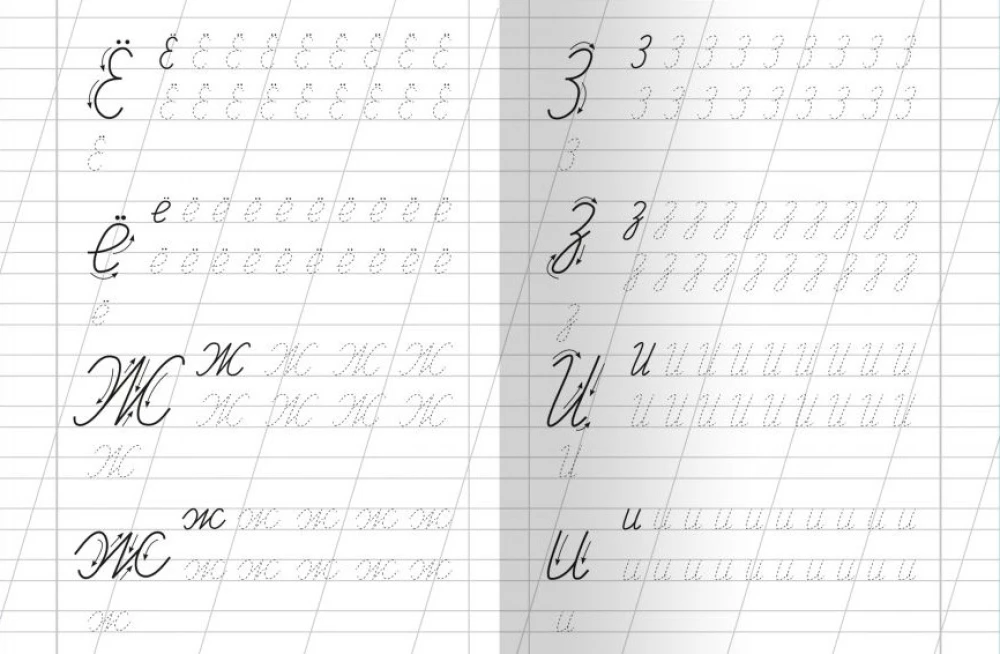 Ё Ё Ё Ё Ё Ё Ё Ё Ё Ё
Ё Ё Ё Ё Ё Ё Ё Ё Ё
Ё
ё ё ё ё ё ё ё ё ё ё ё
ё ё ё ё ё ё ё ё ё ё
ё
Ж Ж Ж Ж Ж
Ж Ж Ж Ж
Ж
ж ж ж ж ж ж
ж ж ж ж ж
ж
З З З З З З З З З З
З З З З З З З З З
З
з з з з з з з з з з з
з з з з з з з з з з
з
И И И И И И И И И И
И И И И И И И И И
И
и и и и и и и и и и и
и и и и и и и и и и
и